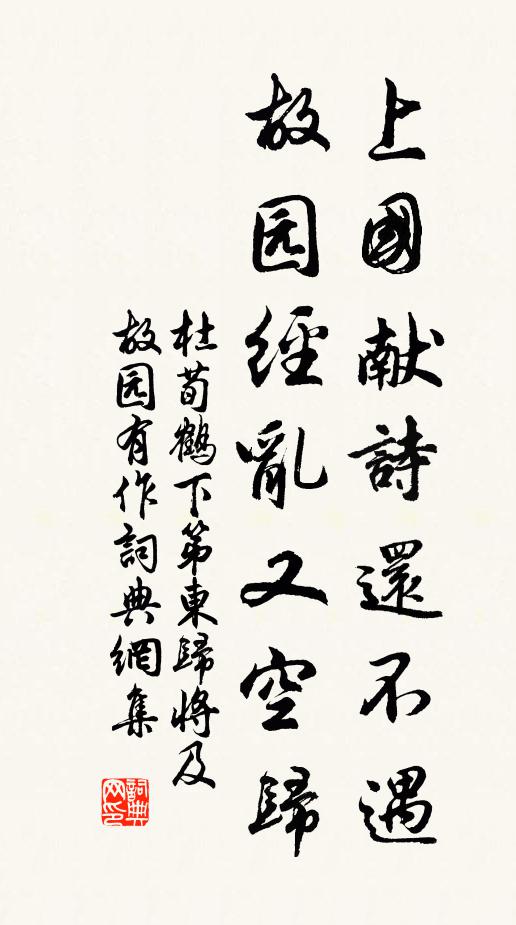 上國献詩還不遇
故园經亂又空歸
杜荀鶴下第東歸將及
故园有作詞典網集
詞典
网印